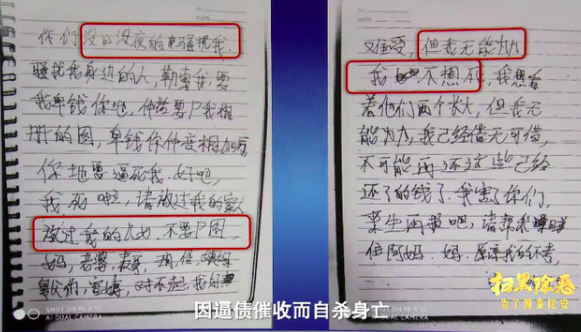 你们没日没夜的电骚扰我.
骚扰我身边的人,勒索我,要
我单钱你地,仲故要P我相
册的图,单钱你仲度相
你地要逼死我.好吧,
我死啦,请放过我的家人
放过我的父母,不要P图,
妈,老婆,
对不起,我好
难受,但我无能为力
我不想死,我想看
着他们两个长大,但我无
能为力,我已经借无可借,
不可能再还这些已经
还了的钱了.我害了你们,
来生再报吧,请帮我
住阿妈.妈,原谅我的不孝,
SHOT ON MI
AI DUAL CAMERA
SHOT ON MI
AI DUAL CAMERA
扫黑除恶
为了国泰民安
因逼债催收而自杀身亡